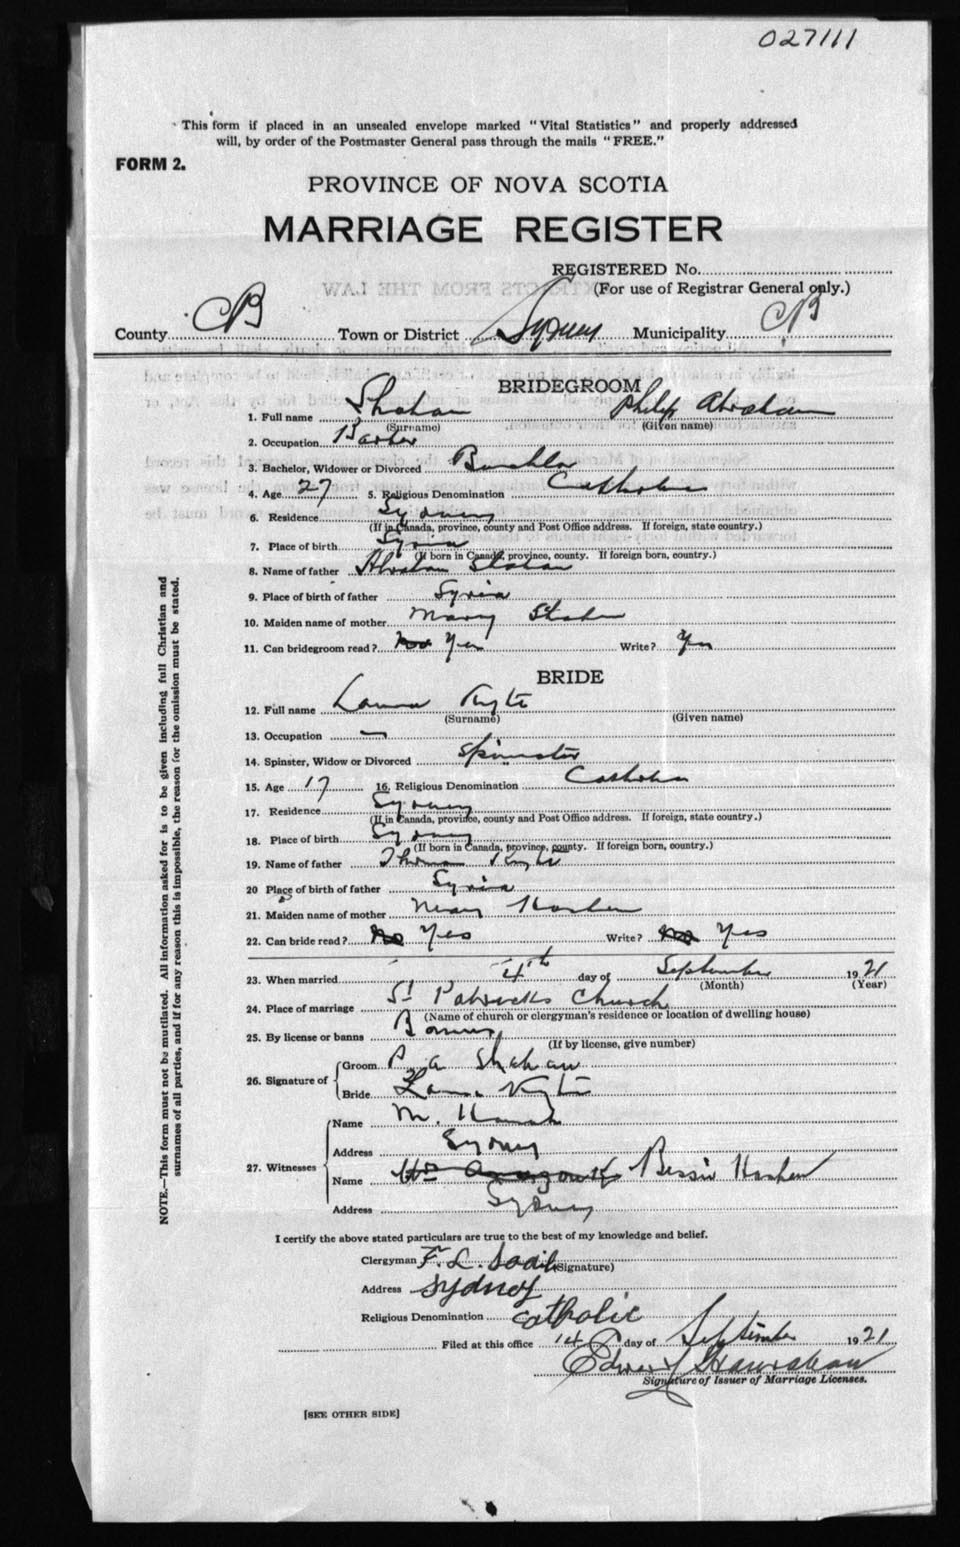 027111
This form if placed in an unsealed envelope marked "Vital Statistics" and properly addressed
will, by order of the Postmaster General pass through the mails "FREE."
FORM 2.
PROVINCE OF NOVA SCOTIA
MARRIAGE REGISTER
REGISTERED No.
(For use of Registrar General only.)
County CB Town or District Sydney Municipality CB
BRIDEGROOM
1. Full name Shahan Philip Abraham
(Surname) (Given name)
2. Occupation Barber
3. Bachelor, Widower or Divorced
4. Age 27 5. Religious Denomination Catholic
6. Residence Sydney
(If in Canada, province, county and Post Office address. If foreign, state country.)
7. Place of birth Syria
(If born in Canada, province, county. If foreign born, country.)
8. Name of father Abraham Shahan
9. Place of birth of father Syria
10. Maiden name of mother Mary
11. Can bridegroom read? Yes Write? Yes
BRIDE
12. Full name Laura Kyte
(Surname) (Given name)
13. Occupation —
14. Spinster, Widow or Divorced Spinster
15. Age 17 16. Religious Denomination Catholic
17. Residence Sydney
(If in Canada, province, county and Post Office address. If foreign, state country.)
18. Place of birth Sydney
(If born in Canada, province, county. If foreign born, country.)
19. Name of father Thomas Kyte
20 Place of birth of father Syria
21. Maiden name of mother Mary
22. Can bride read? No Yes Write? No Yes
23. When married 4th day of September 1921
(Month) (Year)
24. Place of marriage St Patricks Church
(Name of church or clergyman's residence or location of dwelling house)
25. By license or banns Banns
(If by license, give number)
26. Signature of
Groom P. A Shahan
Bride Laura Kyte
27. Witnesses
Name M.
Address Sydney
Name Bessie Hashem
Address Sydney
I certify the above stated particulars are true to the best of my knowledge and belief.
Clergyman F. L.
(Signature)
Address Sydney
Religious Denomination Catholic
Filed at this office 14 day of September 1921
Edward Hanrahan
Signature of Issuer of Marriage Licenses.
[SEE OTHER SIDE]
NOTE.—This form must not be mutilated. All information asked for is to be given including full Christian and
surnames of all parties, and if for any reason this is impossible, the reason for the omission must be stated.